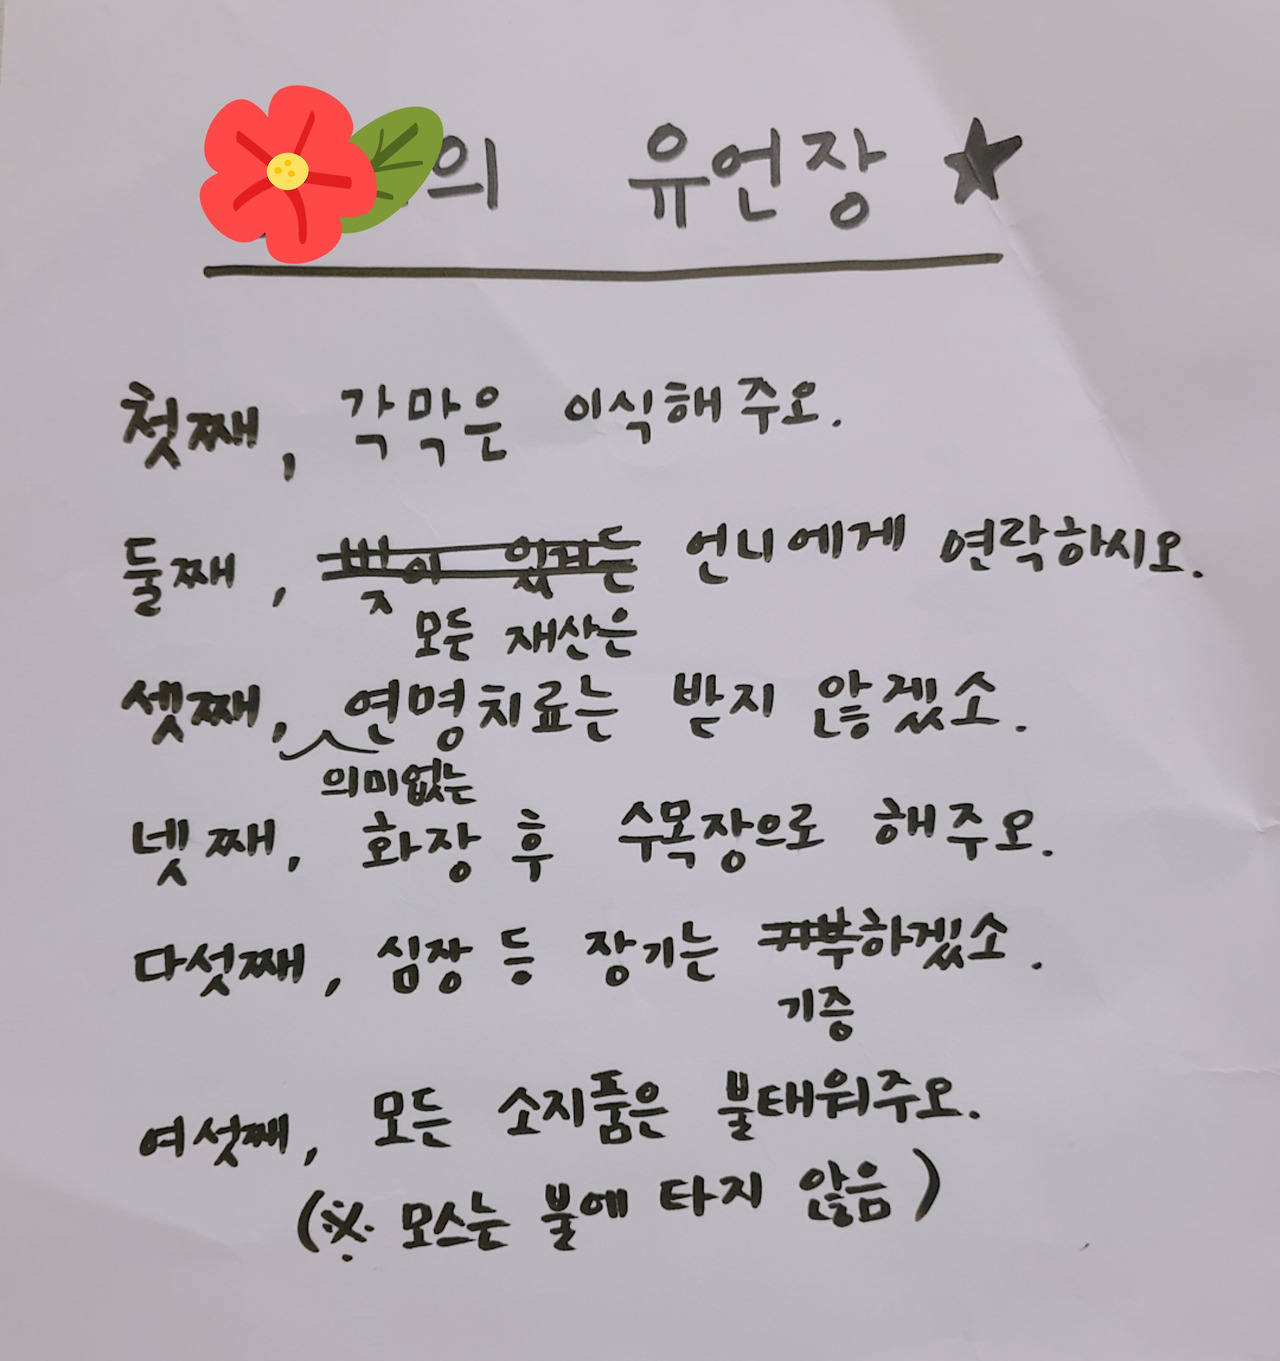 의 유언장 ★
첫째, 각막은 이식해주오.
둘째, 빚이 있거든 언니에게 연락하시오.
모든 재산은
셋째, 연명치료는 받지 않겠소.
의미없는
넷째, 화장 후 수목장으로 해주오.
다섯째, 심장 등 장기는 기부하겠소.
기증
여섯째, 모든 소지품은 불태워주오.
(※ 모스는 불에 타지 않음)